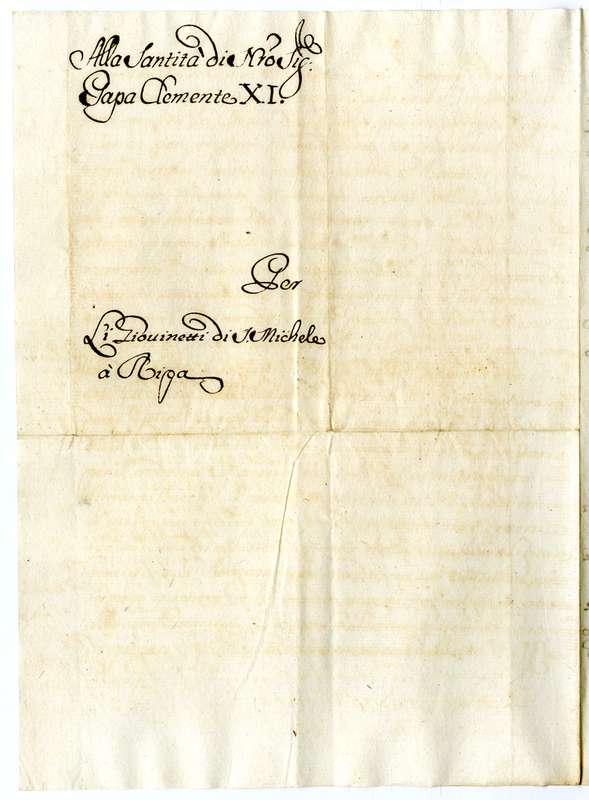 Alla Santità di Nro Sigre
Papa Clemente XI.
Per
Li Giouinetti di S. Michele
à Ripa